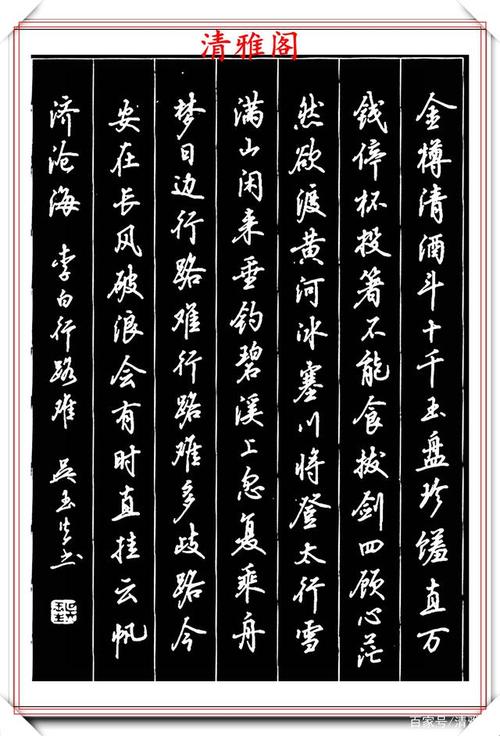 清雅阁
金樽清酒斗十千玉盘珍馐直万
钱停杯投箸不能食拔剑四顾心茫
然欲渡黄河冰塞川将登太行雪
满山闲来垂钓碧溪上忽复乘舟
梦日边行路难行路难多歧路今
安在长风破浪会有时直挂云帆
济沧海 李白行路难 吴玉生书
百家号/清雅